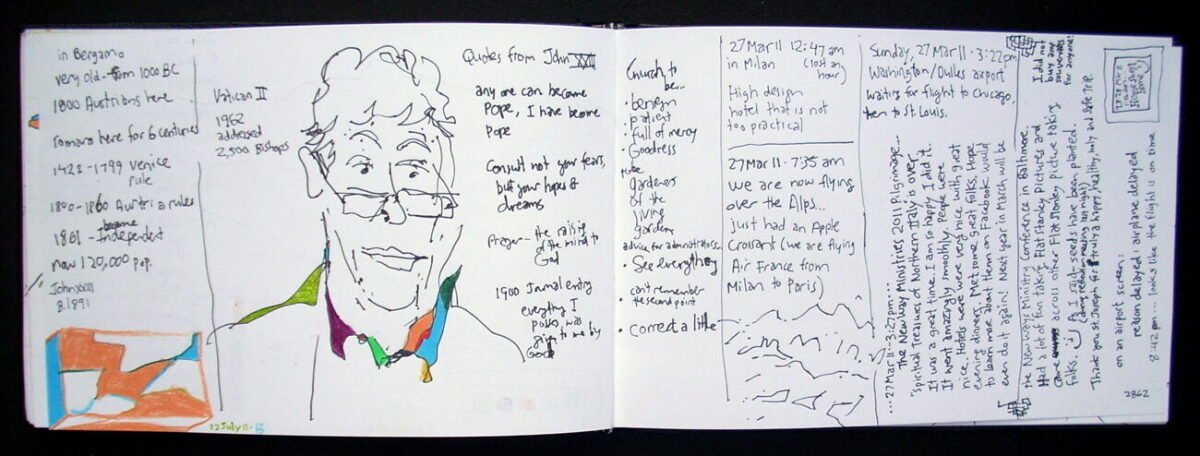 in Bergamo
very old - from 1000 BC
1800 Austrians here
romans here for 6 centuries
1428 - 1799 Venice
rule
1800 - 1860 Austria rules
1861 - became Independent
now 120,000 pop.
John XXIII
B. 1891
12 July 11
Vatican II
1962
addressed
2,500 Bishops
Quotes from John XXIII
any one can become
Pope, I have become
Pope
Consult not your fears,
but your hopes &
dreams
Prayer - the raising
of the mind to
God
1900 Journal entry
everything I
posses was
given to me by
God
Church to
be...
• benign
• patient
• full of mercy
• Goodness
gardeners
of the
living
garden
advice for administrators
• See everything
can't remember
the second point
• correct a little
27 Mar 11 12:47 am
in Milan (lost an
hour)
High design
hotel that is not
too practical
27 Mar 11 • 7:35 am
we are now flying
over the Alps...
just had an Apple
Croissant (we are flying
Air France from
Milan to Paris)
Sunday, 27 Mar 11 • 3:22 pm
Washington/Dulles airport
waiting for flight to Chicago,
then to St. Louis.
...27 Mar 11 • 3:27pm...
The New Way Ministries 2011 Pilgrimage...
"spiritual Treasures of Northern Italy is over.
It was a great time. I am so happy I did it.
It went amazingly smoothly. People were
nice. Hotels were very nice with great
evening dinners. Met some great folks. Hope
to learn more about them on Facebook. Would
even do it again! Next year in March will be
the New Ways Ministry Conference in Baltimore.
Had a lot of fun taking Flat Stanley pictures and
came across other Flat Stanley picture taking
folks. As I said - seeds have been planted.
(during reflection meeting last night)
Thank you St. Joseph for a truly a happy, healthy, holy and safe trip.
I did not
buy any
souvenirs
for anyone!
on an airport screen:
reason delayed: airplane delayed
8:42 pm... looks like the flight is on time
2862